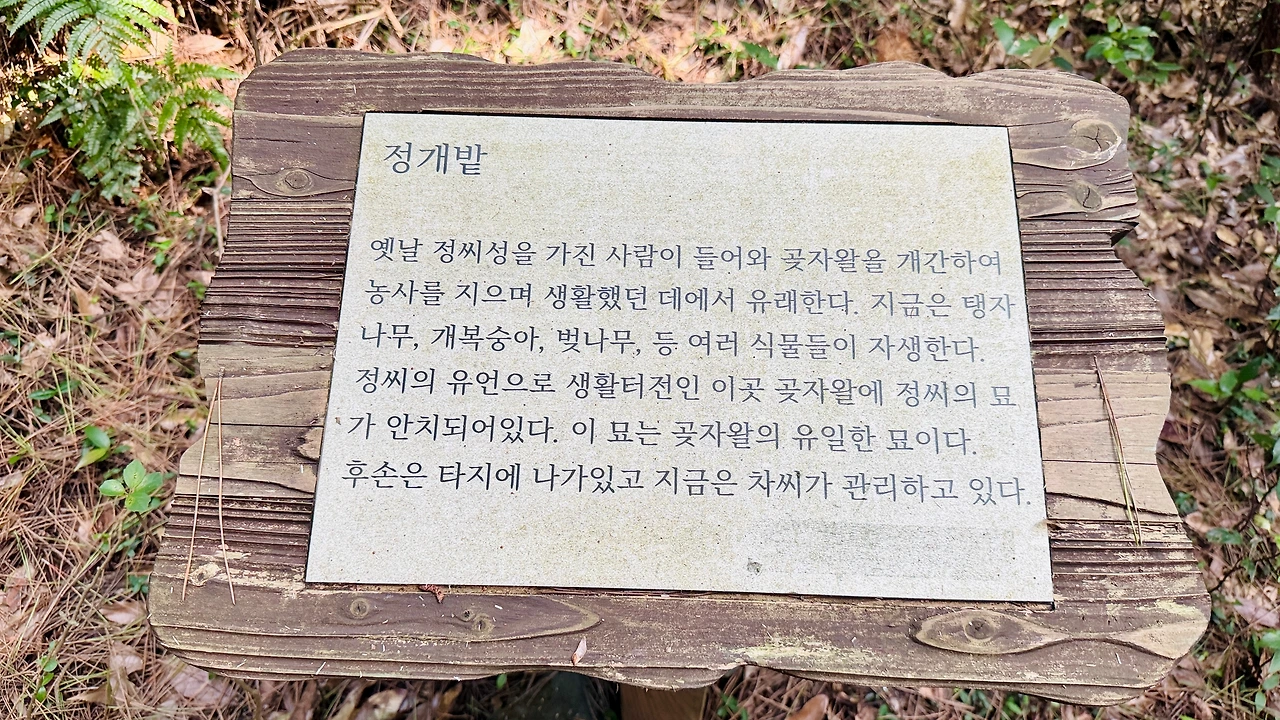 정개밭
옛날 정씨성을 가진 사람이 들어와 곶자왈을 개간하여
농사를 지으며 생활했던 데에서 유래한다. 지금은 탱자
나무, 개복숭아, 벚나무, 등 여러 식물들이 자생한다.
정씨의 유언으로 생활터전인 이곳 곶자왈에 정씨의 묘
가 안치되어있다. 이 묘는 곶자왈의 유일한 묘이다.
후손은 타지에 나가있고 지금은 차씨가 관리하고 있다.